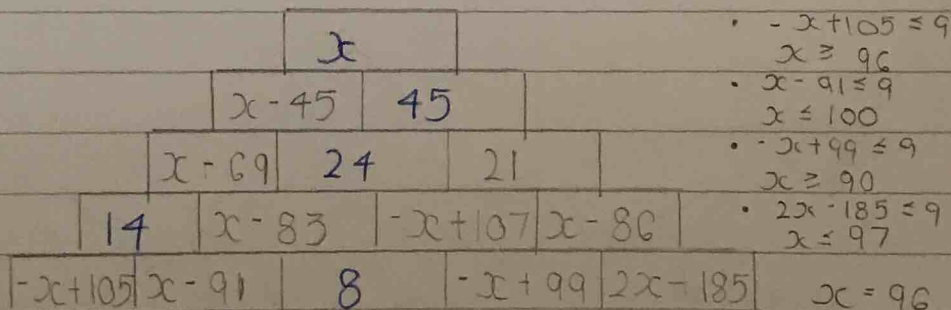 x
x - 45 45
x - 69 24 21
14 x - 83 -x + 107 x - 86
-x + 105 x - 91 8 -x + 99 2x - 185
· -x + 105 ≤ 9
x ≥ 96
· x - 91 ≤ 9
x ≤ 100
· -x + 99 ≤ 9
x ≥ 90
· 2x - 185 ≤ 9
x ≤ 97
x = 96